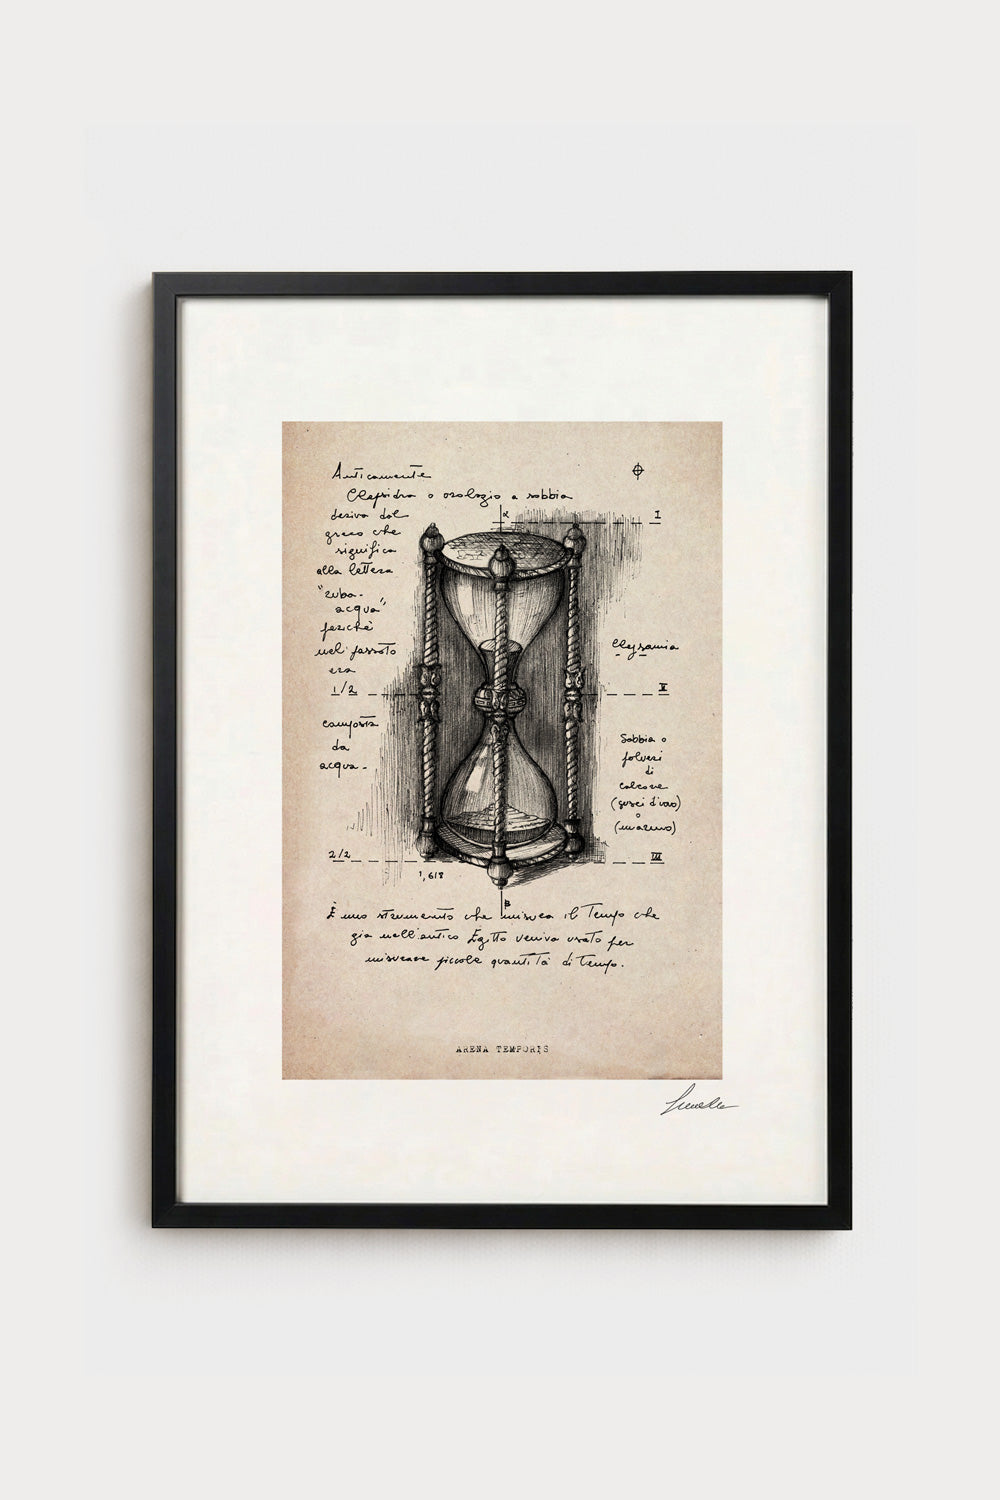 Anticamente
Clepsidra o orologio a sabbia
deriva dal
greco che
significa
alla lettera
"ruba-
acqua"
perchè
nel passato
era
1/2
composta
da
acqua.
2/2
α
I
II
Sabbia o
polveri
di
calcare
(gusci d'uovo)
o
(marmo)
III
1,618
B
È uno strumento che misura il Tempo che
gia nell'antico Egitto veniva usato per
misurare piccole quantità di Tempo.
ARENA TEMPORIS